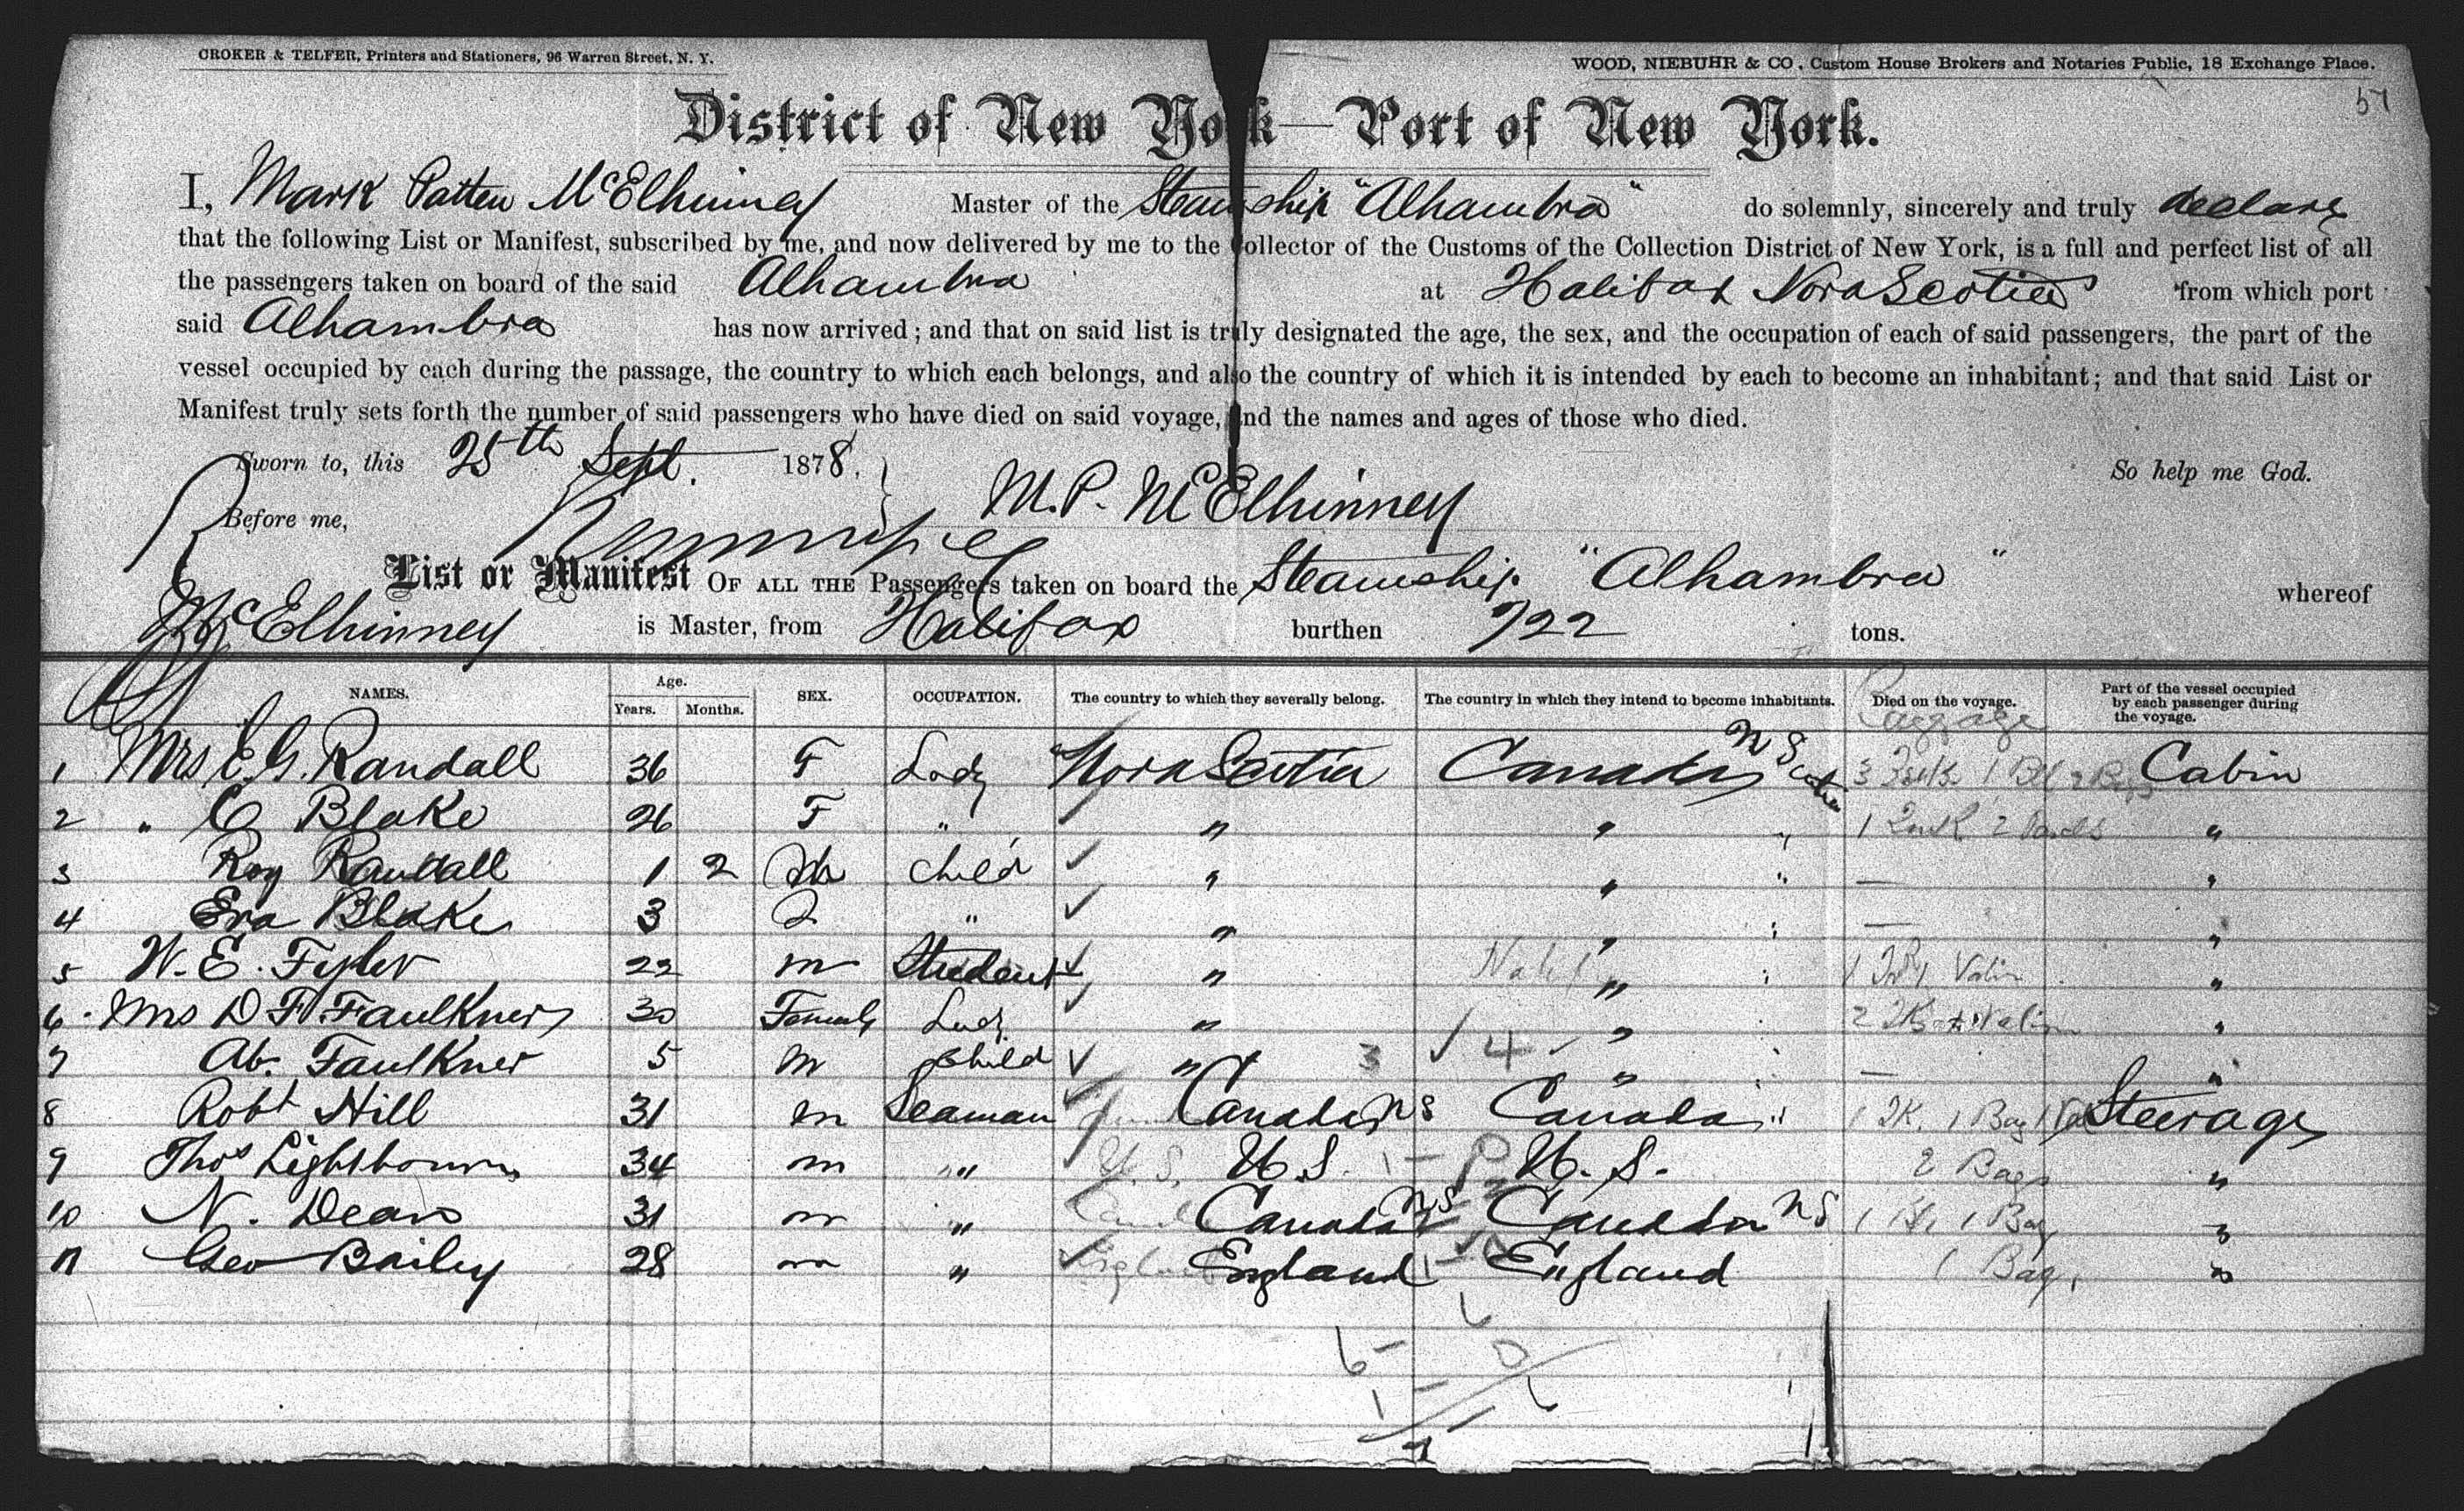 CROKER & TELFER, Printers and Stationers, 96 Warren Street, N. Y.
WOOD, NIEBUHR & CO, Custom House Brokers and Notaries Public, 18 Exchange Place.
57
District of New York—Port of New York.
I, Mark Patten McElhinney Master of the Steamship "Alhambra" do solemnly, sincerely and truly declare
that the following List or Manifest, subscribed by me, and now delivered by me to the Collector of the Customs of the Collection District of New York, is a full and perfect list of all
the passengers taken on board of the said Alhambra at Halifax Nova Scotia from which port
said Alhambra has now arrived; and that on said list is truly designated the age, the sex, and the occupation of each of said passengers, the part of the
vessel occupied by each during the passage, the country to which each belongs, and also the country of which it is intended by each to become an inhabitant; and that said List or
Manifest truly sets forth the number of said passengers who have died on said voyage, and the names and ages of those who died.
Sworn to, this 25th Sept. 1878. So help me God.
Before me, M.P. McElhinney
List or Manifest OF ALL THE Passengers taken on board the Steamship "Alhambra" whereof
McElhinney is Master, from Halifax burthen 722 tons.
NAMES. Age. Years. Months. SEX. OCCUPATION. The country to which they severally belong. The country in which they intend to become inhabitants. Died on the voyage. Part of the vessel occupied by each passenger during the voyage.
Baggage
1 Mrs E. G. Randall 36 F Lady Nova Scotia Canada N Scotia 3 1 2 Cabin
2 " C Blake 26 F " " " " 1 2 "
3 Roy Randall 1 2 M Child " " " — "
4 Eva Blake 3 F " " " " — "
5 W. E. Fyler 22 m Student " " " 1 "
6 Mrs D F Faulkner 30 Female Lady " " 2 "
7 Ab. Faulkner 5 m Child " 3 4 " " — "
8 Robt Hill 31 m Seaman Canada NS Canada " 1 TK. 1 Bag Steerage
9 Thos Lightbourn 34 m " U. S. U. S. 1 — U. S. 2 Bags "
10 N. Dean 31 m " Canada NS Canada NS 1 1 Bag "
11 Geo Bailey 28 m " England England 1 — England 1 Bag, "
6 —
1 —
7